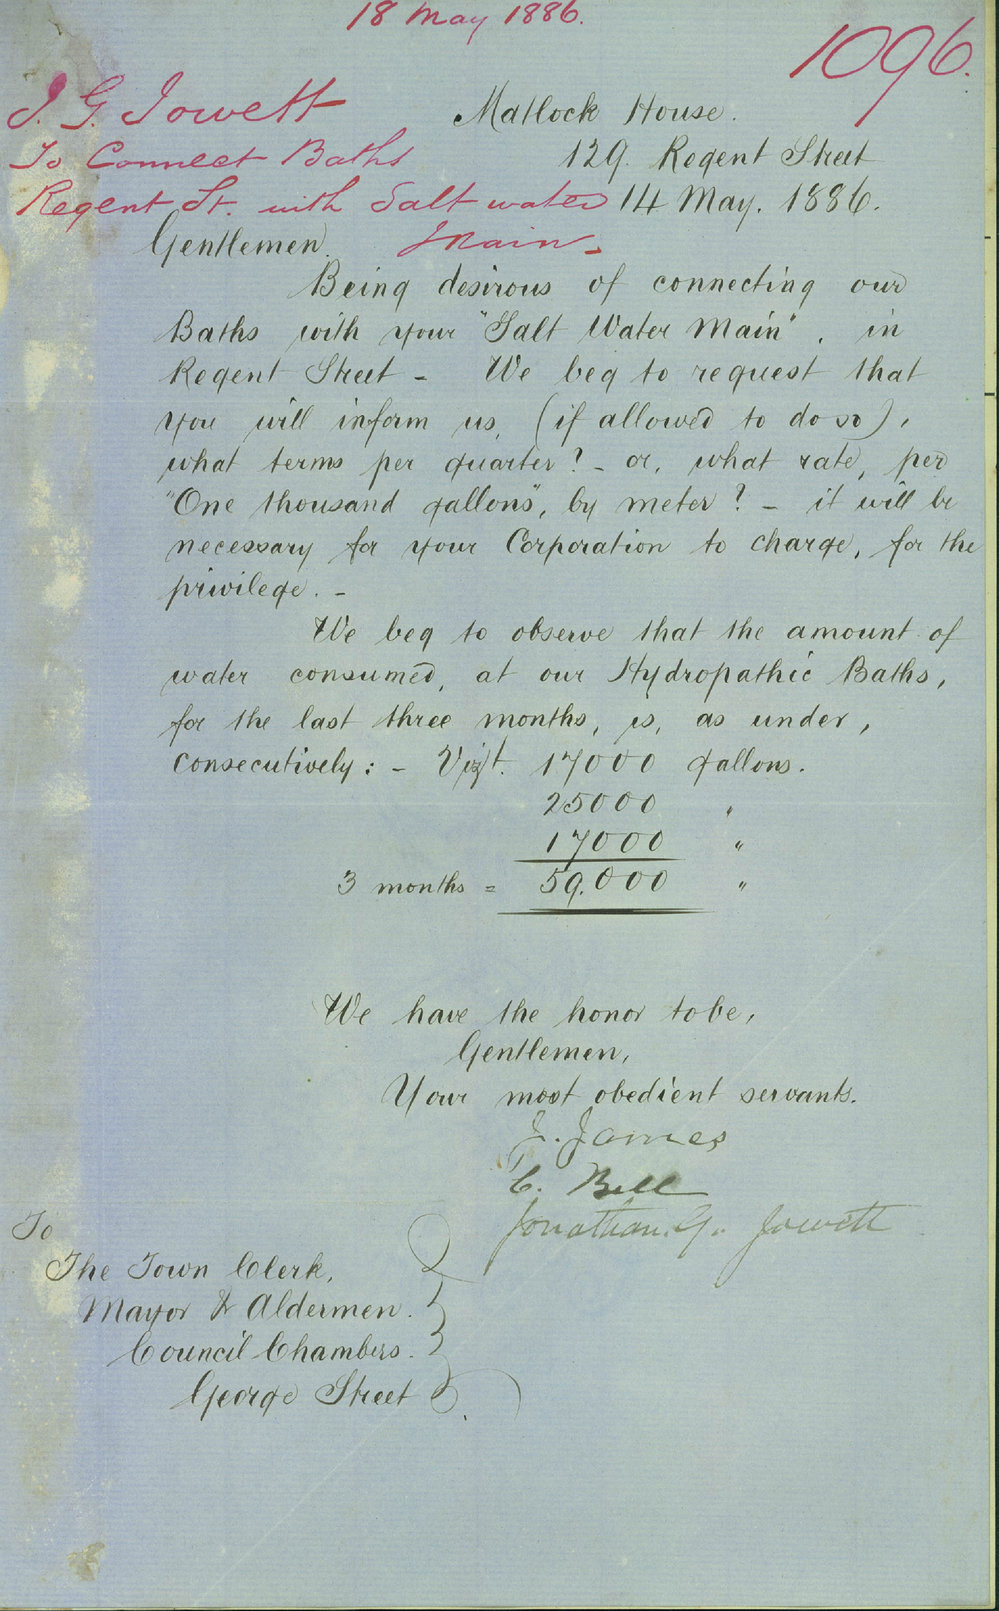 18 May 1886.
1096.
J. G. Jowett
To Connect Baths
Regent St. with Salt water
Main
Matlock House.
129. Regent Street
14 May. 1886.
Gentlemen.
Being desirous of connecting our
Baths with your "Salt Water Main", in
Regent Street - We beg to request that
you will inform us, (if allowed to do so),
what terms per quarter? - or, what rate, per
"One thousand gallons", by meter? - it will be
necessary for your Corporation to charge, for the
privilege. -
We beg to observe that the amount of
water consumed, at our Hydropathic Baths,
for the last three months, is, as under,
Consecutively: - Vizt. 17000 gallons.
25000 "
17000 "
3 months = 59.000 "
We have the honor to be,
Gentlemen,
Your most obedient servants.
J. James
C. Bell
Jonathan. G. Jowett
To
The Town Clerk,
Mayor & Aldermen.
Council Chambers.
George Street.